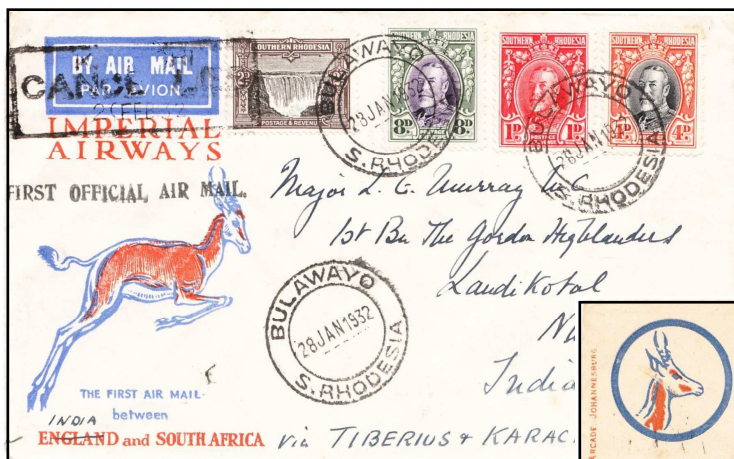 BY AIR MAIL
PAR AVION
IMPERIAL
AIRWAYS
FIRST OFFICIAL AIR MAIL.
SOUTHERN RHODESIA
POSTAGE & REVENUE
8D 8D
SOUTHERN RHODESIA
1D POSTAGE 1D
SOUTHERN RHODESIA
4D 4D
BULAWAYO
28 JAN 1932
S. RHODESIA
BULAWAYO
28 JAN 1932
S. RHODESIA
Major L. G. Murray
1st Bn The Gordon Highlanders
Landikotal
India
BULAWAYO
28 JAN 1932
S. RHODESIA
THE FIRST AIR MAIL
between
INDIA
ENGLAND and SOUTH AFRICA
via TIBERIUS & KARAC
ARCADE JOHANNESBURG